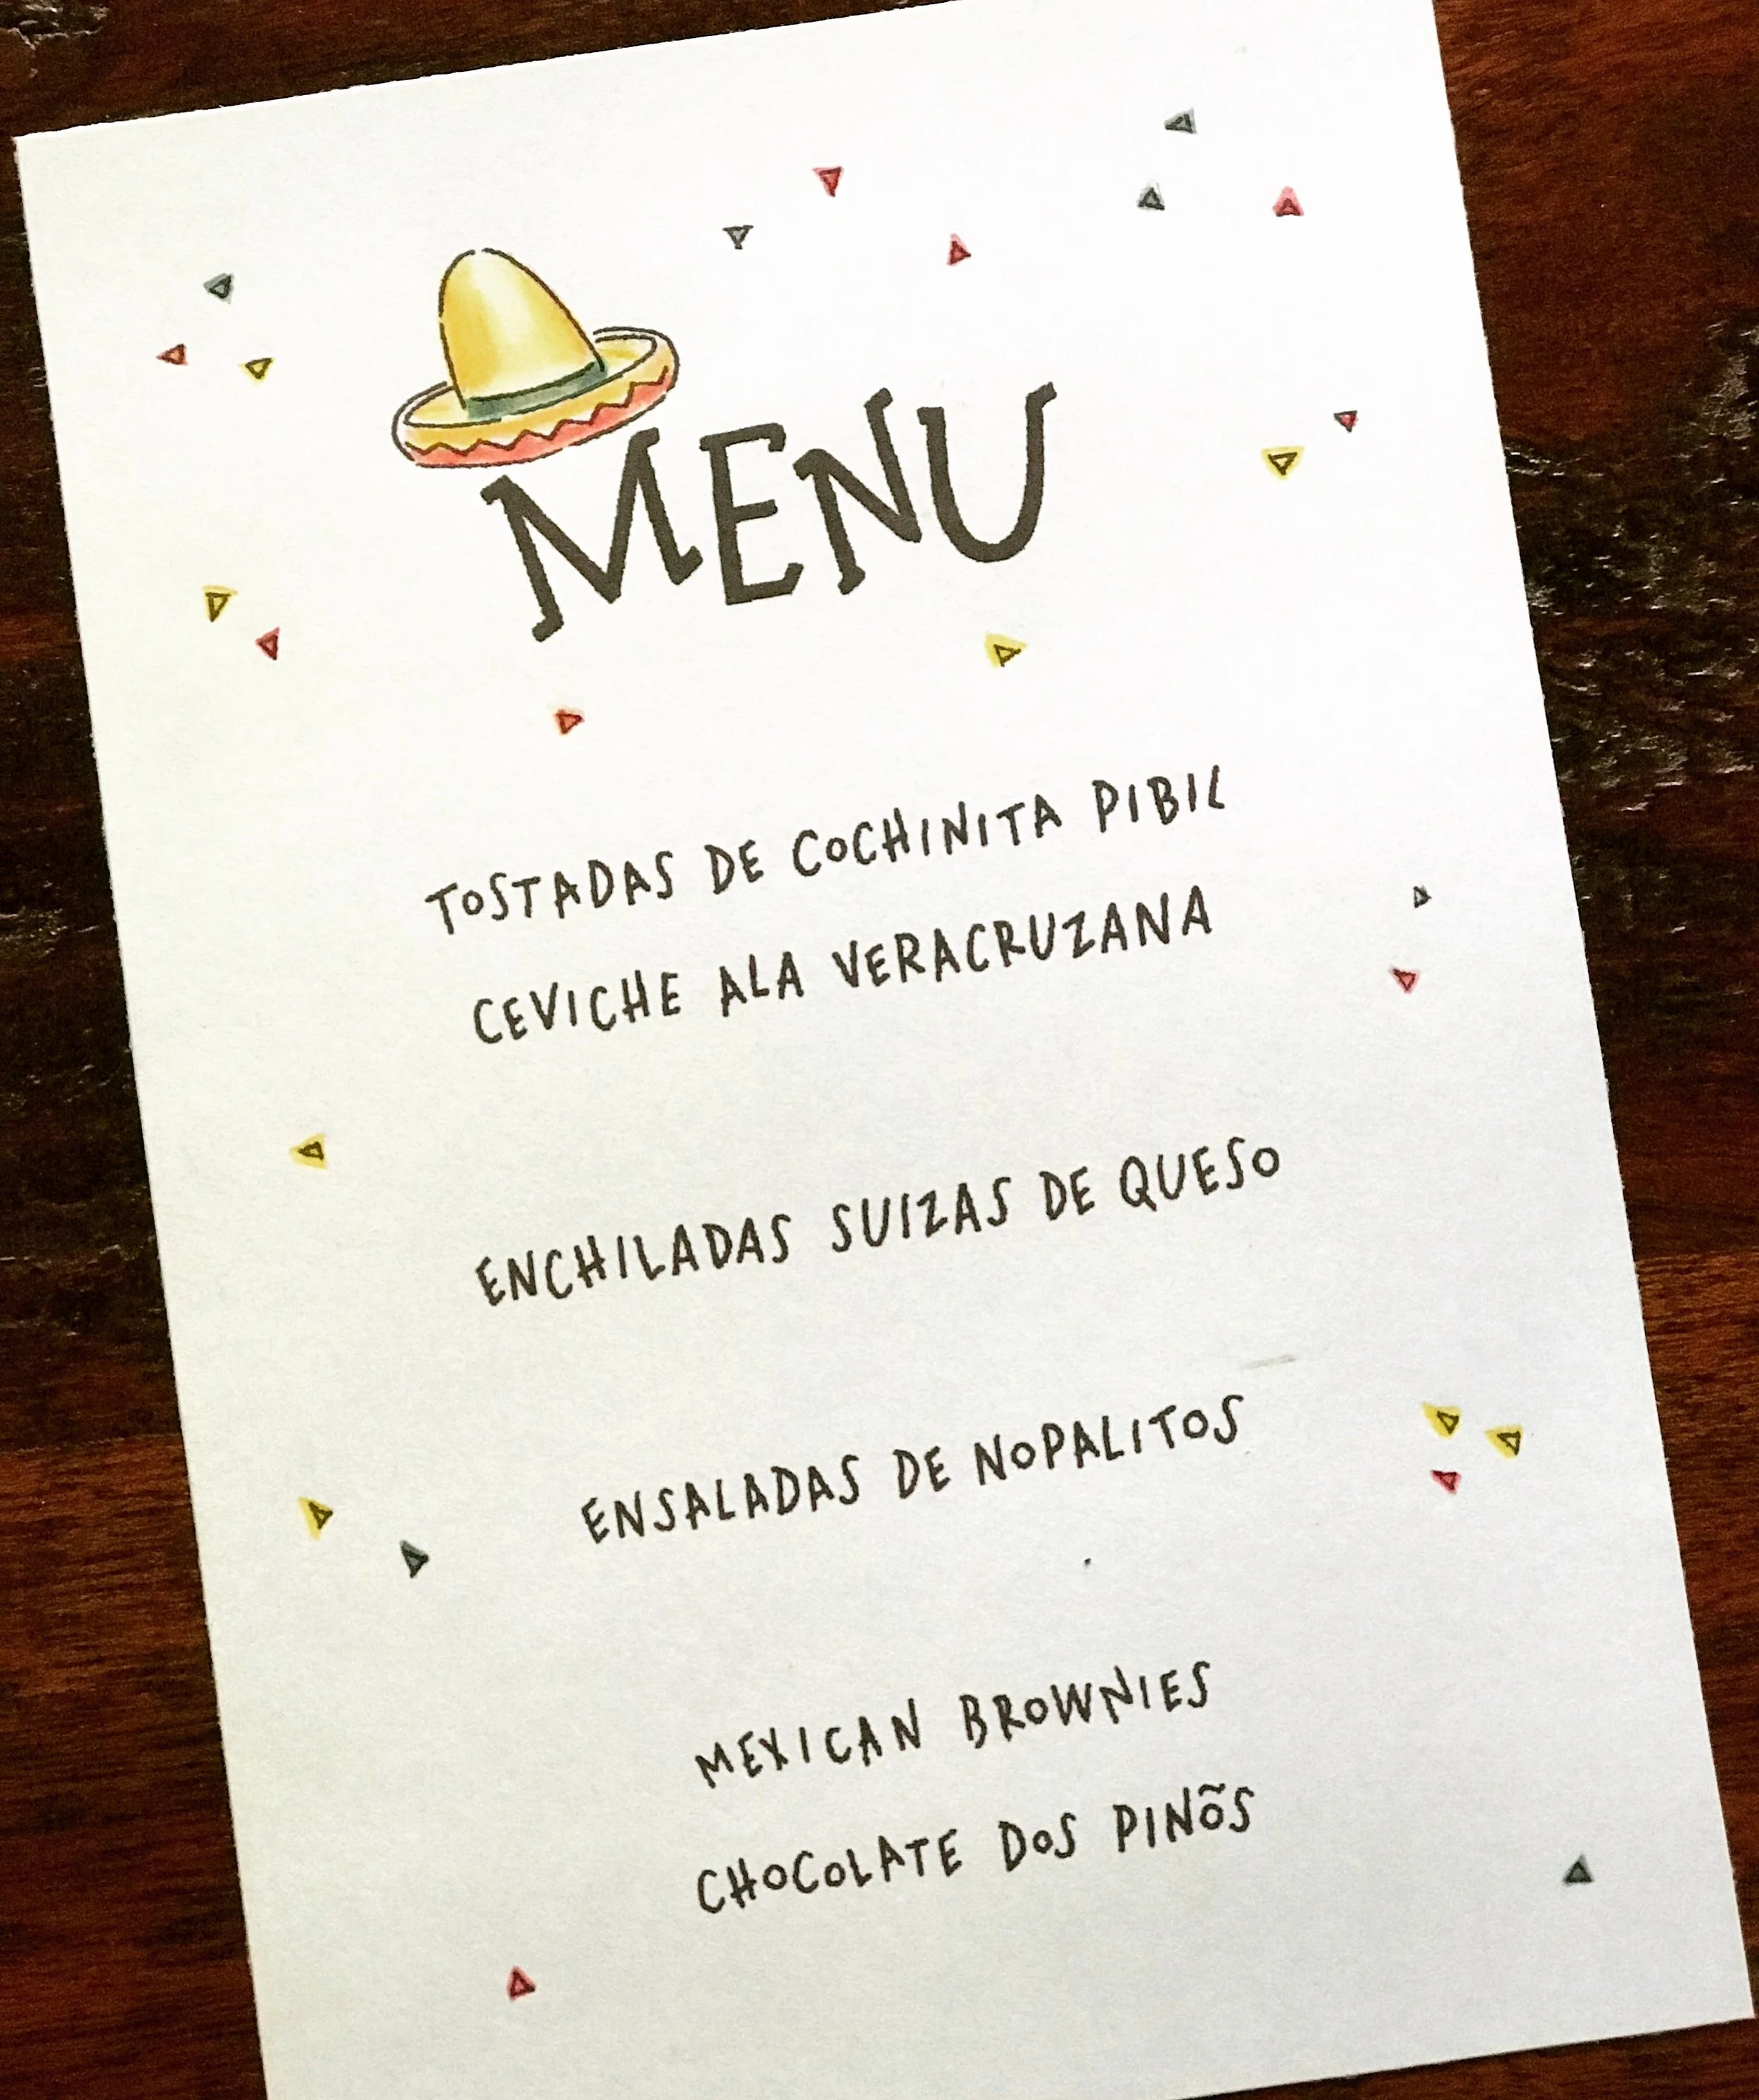 MENU
TOSTADAS DE COCHINITA PIBIL
CEVICHE ALA VERACRUZANA
ENCHILADAS SUIZAS DE QUESO
ENSALADAS DE NOPALITOS
MEXICAN BROWNIES
CHOCOLATE DOS PINÕS